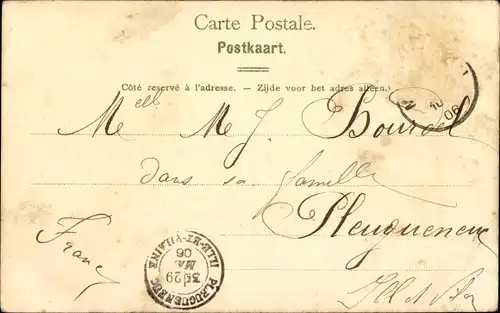 Carte Postale.
Postkaart.
Côté reservé à l'adresse. — Zijde voor het adres alleen.
Mell M J. Bourdel
dans sa famille
Pleugueneuc
France
Ill et Vil
10
06
PLEUGUENEUC
3E 29
MA
06
ILLE-ET-VILAINE